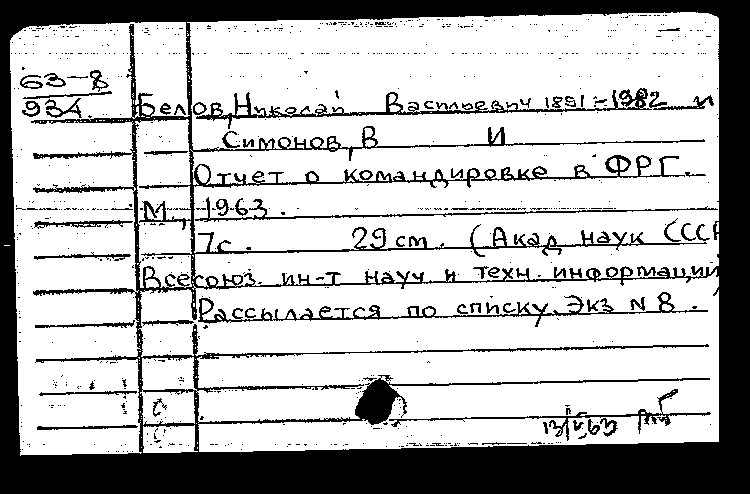 63-8
934. Белов, Николай Васильевич 1891-1982 и
Симонов, В И
Отчет о командировке в ФРГ.
М., 1963.
7с. 29 cm. (Акад наук СССР
Всесоюз. ин-т науч и техн. информации
Рассылается по списку. Экз N 8.